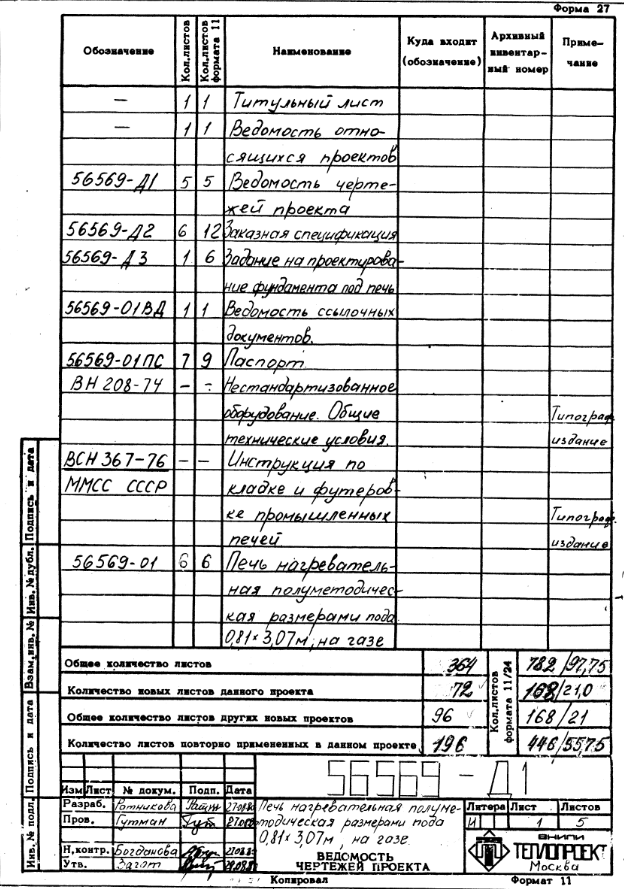 Форма 27
Обозначение Кол.листов Кол.листов формата 11 Наименование Куда входит (обозначение) Архивный инвентар-ный номер Приме-чание
— 1 1 Титульный лист
— 1 1 Ведомость отно-
сящихся проектов
56569-Д1 5 5 Ведомость черте-
жей проекта
56569-Д2 6 12 Заказная спецификация
56569-Д3 1 6 Задание на проектирова-
ние фундамента под печь
56569-01ВД 1 1 Ведомость ссылочных
документов.
56569-01ПС 7 9 Паспорт
ВН 208-74 - - Нестандартизованное
оборудование. Общие Типограф.
технические условия. издание
ВСН 367-76 - - Инструкция по
ММСС СССР кладке и футеров-
ке промышленных Типограф.
печей издание
56569-01 6 6 Печь нагреватель-
ная полуметодичес-
кая размерами пода
0,81×3,07м, на газе
Общее количество листов 364 Кол.листов формата 11/24 782/97,75
Количество новых листов данного проекта 72 168/21,0
Общее количество листов других новых проектов 96 168/21
Количество листов повторно примененных в данном проекте 196 446/55,75
56569-Д1
Изм Лист № докум. Подп. Дата
Разраб. Ротникова Печь нагревательная полуме- Литера Лист Листов
Пров. Гутман тодическая размерами пода И 1 5
0,81×3,07м, на газе
Н.контр. Богданова ВЕДОМОСТЬ ВНИПИ
Утв. Загот ЧЕРТЕЖЕЙ ПРОЕКТА ТЕПЛОПРОЕКТ
Москва
Копировал Формат 11
Инв. № подл. Подпись и дата Взам.инв. № Инв. № дубл. Подпись и дата